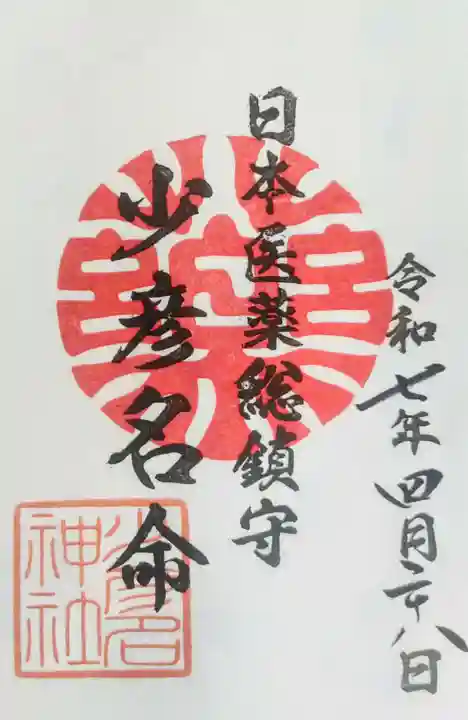 令和七年四月二十八日
日本医薬総鎮守
少彦名命
少彦名
神社